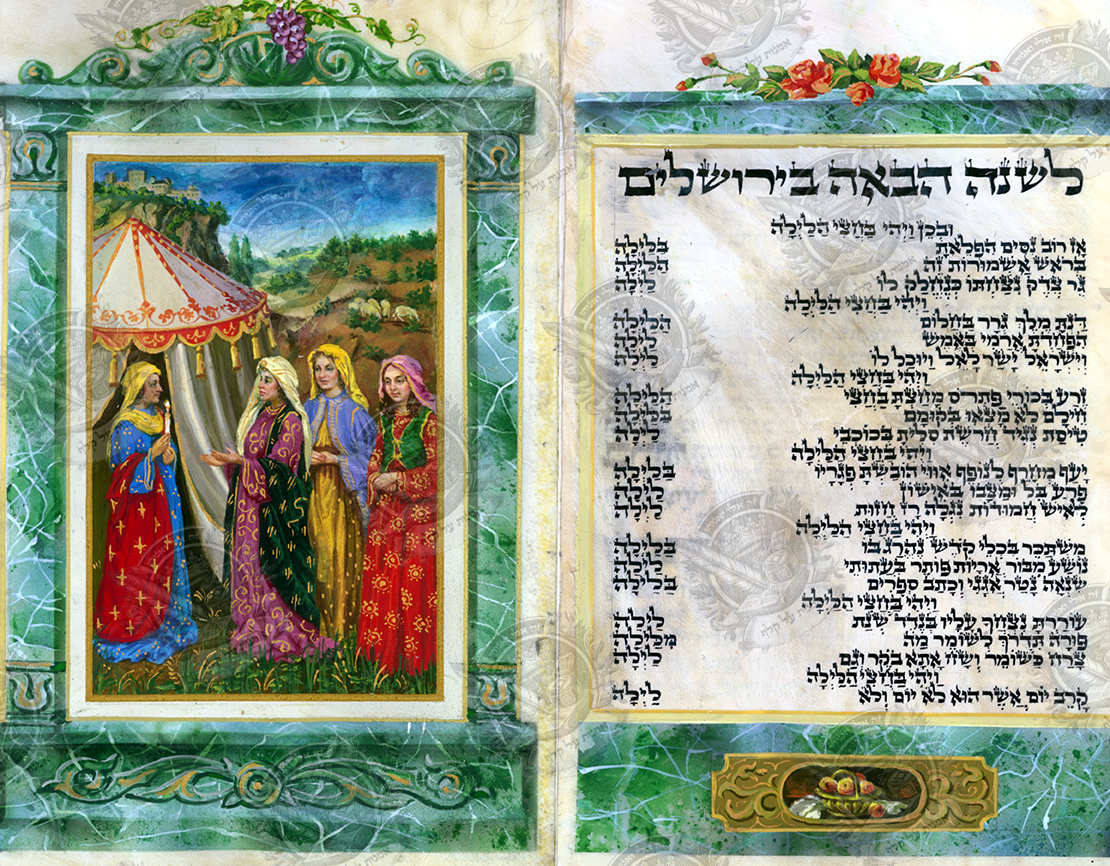 לשנה הבאה בירושלים
ובכן ויהי בחצי הלילה
אז רוב נסים הפלאת בלילה
בראש אשמורות זה הלילה
גר צדק נצחתו כנחלק לו לילה
ויהי בחצי הלילה
דנת מלך גרר בחלום הלילה
הפחדת ארמי באמש לילה
וישראל ישר לאל ויוכל לו לילה
ויהי בחצי הלילה
זרע בכורי פתרס מחצת בחצי הלילה
חילם לא מצאו בקומם בלילה
טיסת נגיד חרשת סלית בכוכבי לילה
ויהי בחצי הלילה
יעץ מחרף לנופף אווי הובשת פגריו בלילה
כרע בל ומצבו באישון לילה
לאיש חמודות נגלה רז חזות לילה
ויהי בחצי הלילה
משתכר בכלי קדש נהרג בו בלילה
נושע מבור אריות פותר בעתותי לילה
שנאה נטר אגגי וכתב ספרים בלילה
ויהי בחצי הלילה
עוררת נצחך עליו בנדד שנת לילה
פורה תדרך לשומר מה מלילה
צרח כשומר ושח אתא בקר וגם לילה
ויהי בחצי הלילה
קרב יום אשר הוא לא יום ולא לילה
זה אלי ואנוהו
אמנות על קלף